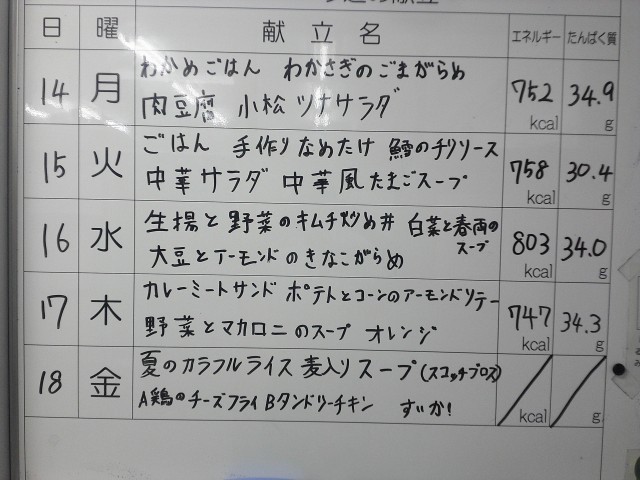 日 曜 献立名 エネルギー たんぱく質
14 月 わかめごはん わかさぎのごまがらめ 752 kcal 34.9 g
肉豆腐 小松ツナサラダ
15 火 ごはん 手作りなめたけ 鱈のチリソース 758 kcal 30.4 g
中華サラダ 中華風たまごスープ
16 水 生揚と野菜のキムチ炒め丼 白菜と春雨の 803 kcal 34.0 g
スープ
大豆とアーモンドのきなこがらめ
17 木 カレーミートサンド ポテトとコーンのアーモンドソテー 747 kcal 34.3 g
野菜とマカロニのスープ オレンジ
18 金 夏のカラフルライス 麦入りスープ(スコッチブロス) kcal g
A鶏のチーズフライ Bタンドリーチキン すいか!